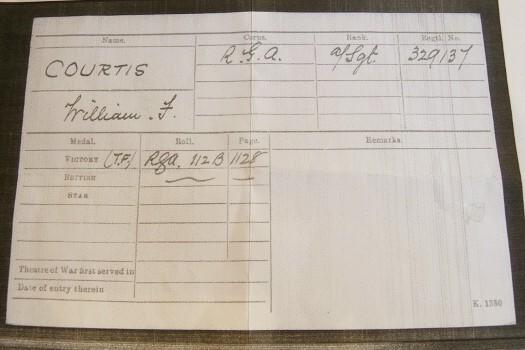 Name. Corps. Rank. Regtl. No.
COURTIS R.G.A. a/Sgt. 329137
William. F.
Medal. Roll. Page. Remarks.
VICTORY (T.F.) RGA. 112B 1128
BRITISH
STAR
Theatre of War first served in
Date of entry therein
K. 1380